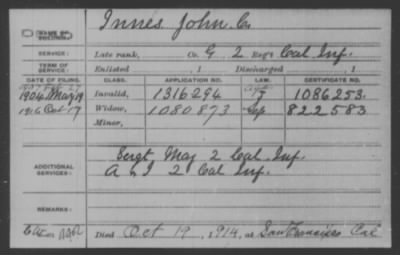 NAME OF SOLDIER:
Innes John C.
SERVICE:
Late rank, Co. G. 2 Reg't Cal Inf.
TERM OF SERVICE:
Enlisted , 1 Discharged , 1
DATE OF FILING. CLASS. APPLICATION NO. LAW. CERTIFICATE NO.
1904 May 19 Invalid, 1316294 1086253.
1916 Oct 17 Widow, 1080873 822583
Minor,
ADDITIONAL SERVICES:
Sergt Maj 2 Cal Inf
A & I 2 Cal Inf.
REMARKS:
Died Oct 19, 1914, at San Francisco Cal